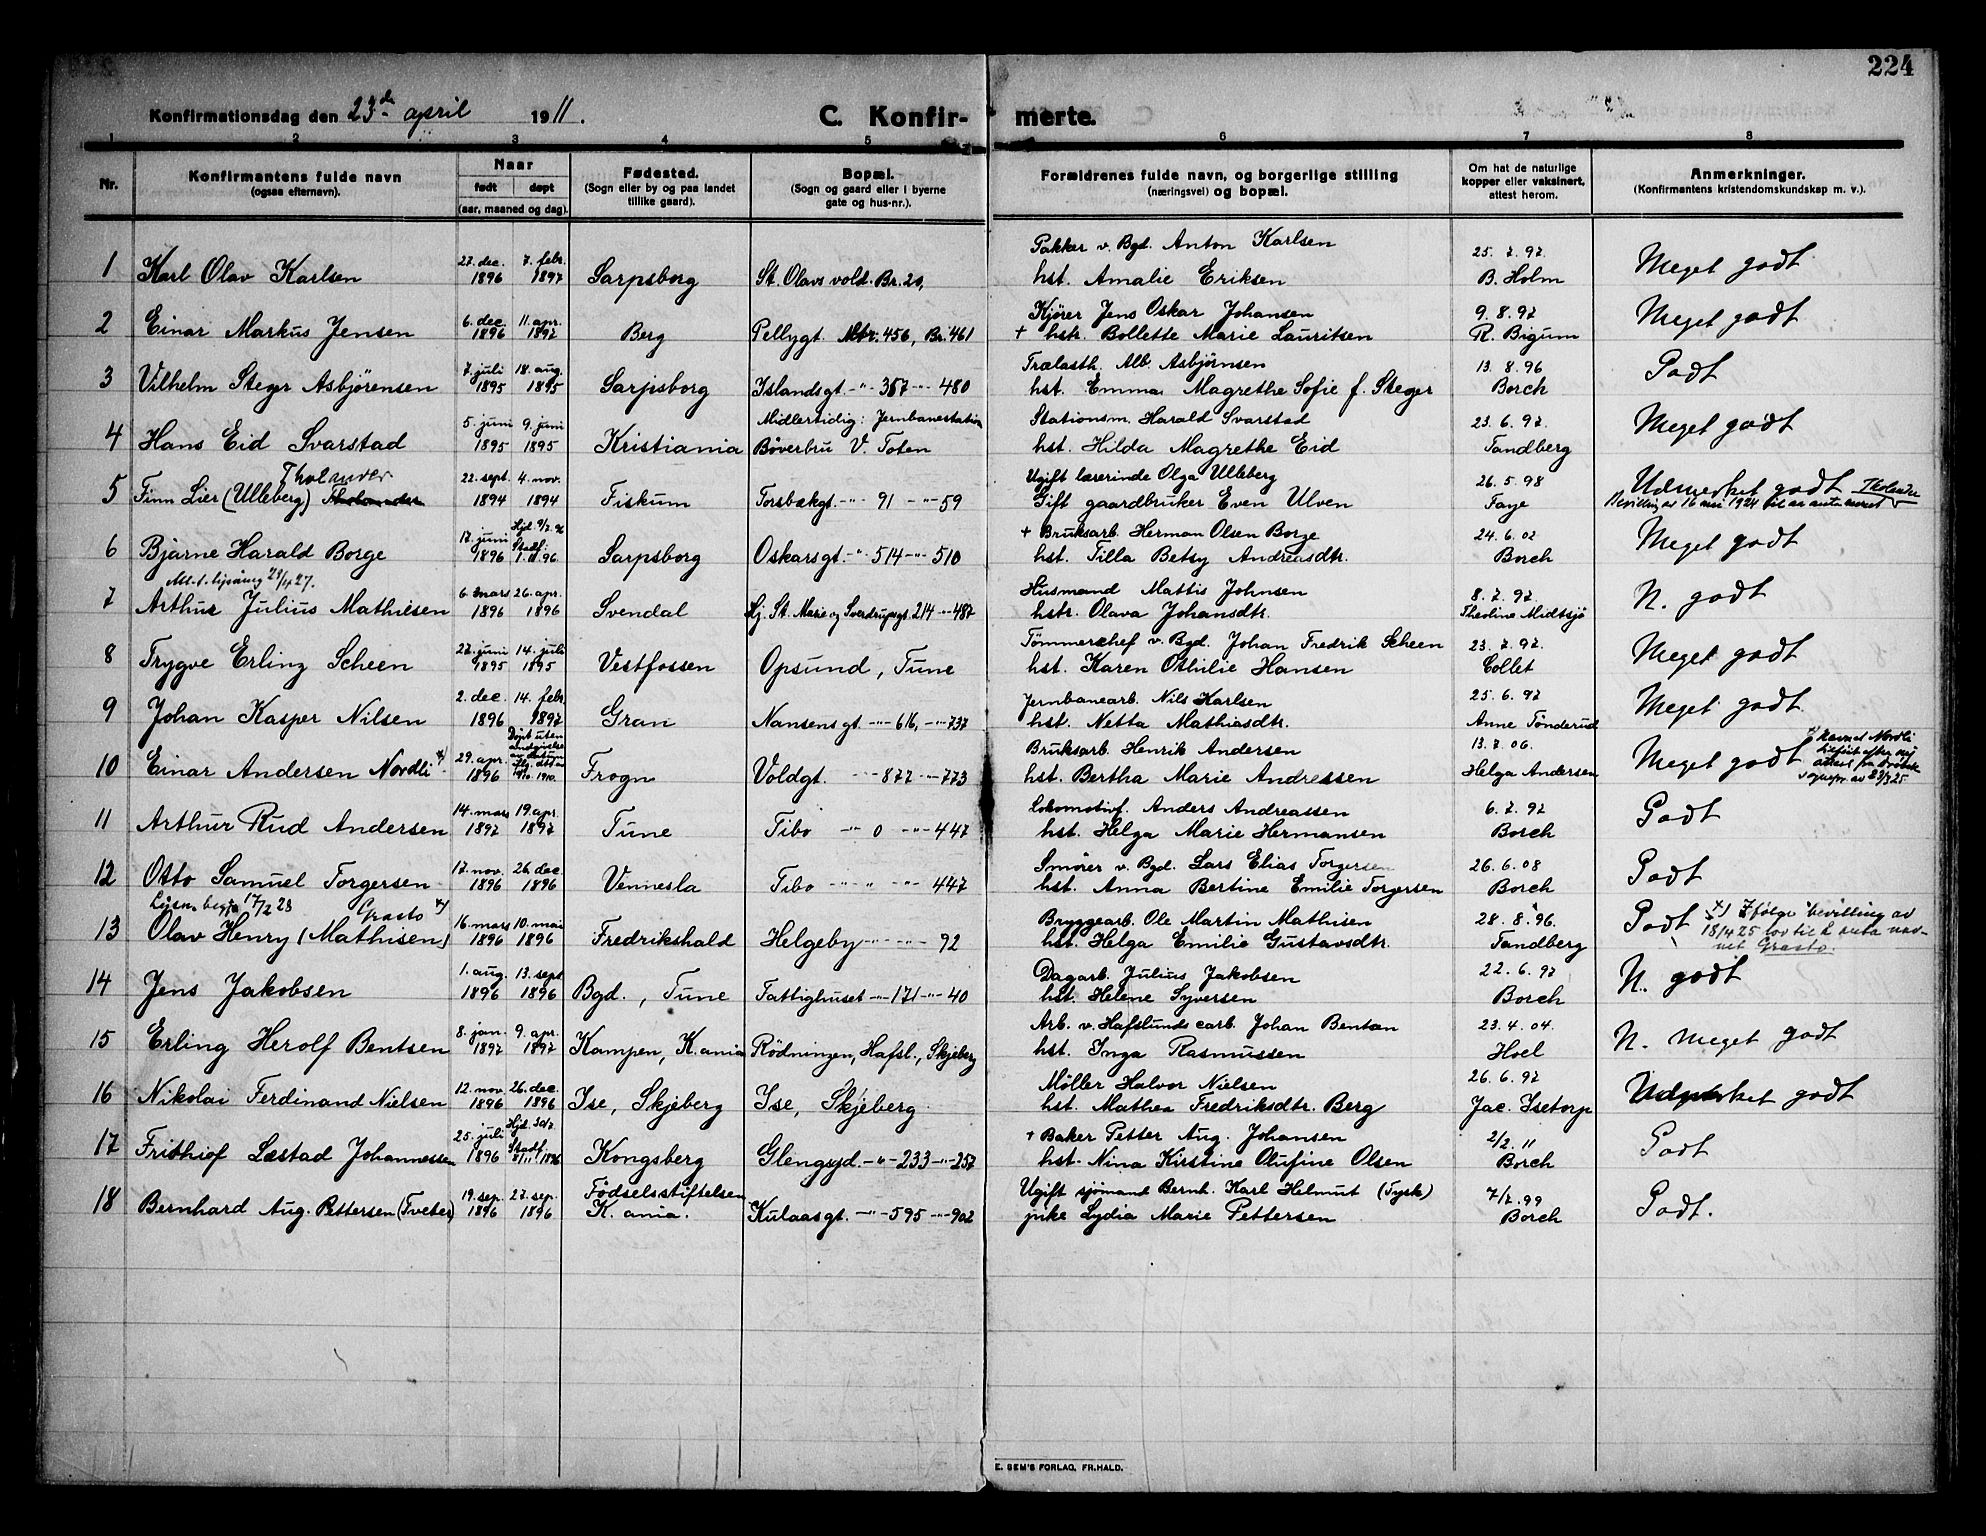 224
Konfirmationsdag den 23de april 1911. C. Konfir- merte.
1 2 3 4 5 6 7 8
Nr. Konfirmantens fulde navn (ogsaa efternavn). Naar født døpt (aar, maaned og dag). Fødested. (Sogn eller by og paa landet tillike gaard). Bopæl. (Sogn og gaard eller i byerne gate og hus-nr.). Forældrenes fulde navn, og borgerlige stilling (næringsvei) og bopæl. Om hat de naturlige kopper eller vaksinert, attest herom. Anmerkninger. (Konfirmantens kristendomskundskap m. v.).
27. dec. 7. febr. Pakker v. Bgd. Anton Karlsen 25. 7. 97.
1 Karl Olav Karlsen 1896 1897 Sarpsborg St. Olavs vold. Br. 20, hst. Amalie Eriksen B. Holm Meget godt
6. dec. 11. apr. Kjører Jens Oskar Johansen 9. 8. 97
2 Einar Markus Jensen 1896 1897 Berg Pellygt. Mtr. 456, Br. 461 + hstr. Bollette Marie Lauritsen R. Bigum Meget godt
7. juli 18. aug. Trælasth. Alb. Asbjørnsen 13. 8. 96
3 Vilhelm Steger Asbjørensen 1895 1895 Sarpsborg Islandsgt. -"- 367 -"- 480 hst. Emma Magrethe Sofie f. Steger Borch Godt
5. juni 9. juni Midlertidig: Jernbanestation Stationsm. Harald Svarstad 23. 6. 97.
4 Hans Eid Svarstad 1895 1895 Kristiania Böverbru V. Toten hst. Hilda Magrethe Eid Tandberg Meget godt
Tholander 22. sept. 4. nov. Ugift lærerinde Olga Ulleberg 26. 5. 98 Udmerket godt Tholander
5 Finn Lier (Ulleberg) Tholander 1894 1894 Fiskum Torsbækgt. -"- 91 -"- 59 Gift gaardbruker Even Ulven Faye Bevilling av 16 mai 1924 til at anta navnet
17. juni Hjd. 9/7. 96 + Bruksarb. Herman Olsen Borge 24. 6. 02
6 Bjarne Harald Borge 1896 Stadf. 1. 11. 96. Sarpsborg Oskarsgt. -"- 514 -"- 510 hst. Tilla Betsy Andreasdtr. Borch Meget godt
6 mars 26. apr. Husmand Mattis Johnsen 8. 7. 97.
7 Arthur Julius Mathiesen 1896 1896 Svendal Hj. St. Marie og Sverdrupsgt. 214 -"- 487 hstr. Olava Johansdtr. Theoline Midtsjø N. godt
27. juni 14. juli Tömmerchef v. Bgd. Johan Fredrik Scheen 23. 7. 97.
8 Trygve Erling Scheen 1895 1895 Vestfossen Opsund, Tune hst. Karen Othilie Hansen Collet Meget godt
2. dec. 14. febr. Jernbanearb. Nils Karlsen 25. 6. 97
9 Johan Kasper Nilsen 1896 1897 Gran Nansensgt -"- 616, -"- 737 hst. Netta Mathiasdtr. Anne Tönderud Meget godt
29. apr. Døpt uten angivelse av datum flg. attest 9/10. 1910. Bruksarb. Henrik Andersen 13. 7. 06. x) Navnet Nordli
10 Einar Andersen Nordli x) 1896 Frogn Voldgt. -"- 877 -"- 773 hst. Bertha Marie Andressen Helga Andersen Meget godt
14. mars 19. apr. Lokomotivf. Anders Andreassen 6. 7. 97
11 Arthur Rud Andersen 1897 1897 Tune Tibo -"- 0 -"- 447 hst. Helga Marie Hermansen Borch Godt
17. nov. 26. dec. Smører v. Bgd. Lars Elias Torgersen 26. 6. 08
12 Otto Samuel Torgersen 1896 1896 Vennesla Tibo -"- " -"- 447 hst. Anna Bertine Emilie Torgersen Borch Godt
17/2 28 Grasto x) 16. mars 10. mai Bryggearb. Ole Martin Mathisen 28. 8. 96. x) Ifølge bevilling av
13 Olav Henry (Mathisen) 1896 1896 Fredrikshald Helgeby -"- -"- 92 hst. Helga Emilie Gustavsdtr. Tandberg Godt 18/4 25 lov til å anta navnet Grasto.
1. aug. 13. sept Dagarb. Julius Jakobsen 22. 6. 97
14 Jens Jakobsen 1896 1896 Bgd., Tune Fattighuset -"- 171 -"- 40 hst. Helene Syversen Borch N. godt
8. jan. 9. apr. Arb. v. Hafslunds carb. Johan Bentsen 23. 4. 04.
15 Erling Herolf Bentsen 1897 1897 Kampen, K.ania Rödningen, Hafsl., Skjeberg hst. Inga Rasmussen Hoel N. meget godt
12. nov. 26. dec. Møller Halvor Nielsen 26. 6. 97
16 Nikolai Ferdinand Nielsen 1896 1896 Ise, Skjeberg Ise, Skjeberg hst. Mathea Fredriksdtr. Berg Jac. Isetorp Udmerket godt
25. juli Hjd. 30/7. + Baker Petter Aug. Johansen 2/2. 11
17 Frithiof Læstad Johannessen 1896 Stadf. 8/11 1896 Kongsberg Glengsgd. -"- 233 -"- 257 hst. Nina Kirstine Olufine Olsen Borch Godt
19. sep. 27. sep. Födselsstiftelsen Ugift sjömand Bernh. Karl Helmut (Tysk) 7/7. 99
18 Bernhard Aug. Pettersen (Tveter) 1896 1896 K. ania. Kulaasgt. -"- 595 -"- 902 pike Lydia Marie Pettersen Borch Godt.
E. SEM'S FORLAG, FR.HALD.